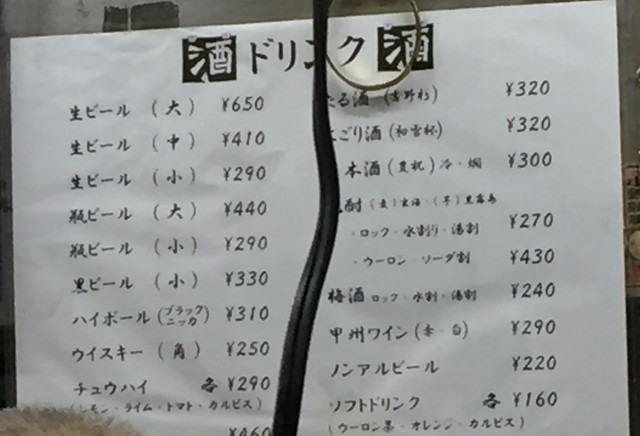 酒 ドリンク 酒
生ビール (大) ¥650
生ビール (中) ¥410
生ビール (小) ¥290
瓶ビール (大) ¥440
瓶ビール (小) ¥290
黒ビール (小) ¥330
ハイボール (ブラックニッカ) ¥310
ウイスキー (角) ¥250
チュウハイ 各 ¥290
(レモン・ライム・トマト・カルピス)
¥460
たる酒 (吉野杉) ¥320
ごり酒 (初雪杯) ¥320
本酒 (豊祝) 冷・燗 ¥300
酎 (麦) ・(芋) 黒霧島
・ロック・水割り・湯割 ¥270
・ウーロン・ソーダ割 ¥430
梅酒 ロック・水割・湯割 ¥240
甲州ワイン (赤・白) ¥290
ノンアルビール ¥220
ソフトドリンク 各 ¥160
(ウーロン茶・オレンジ・カルピス)